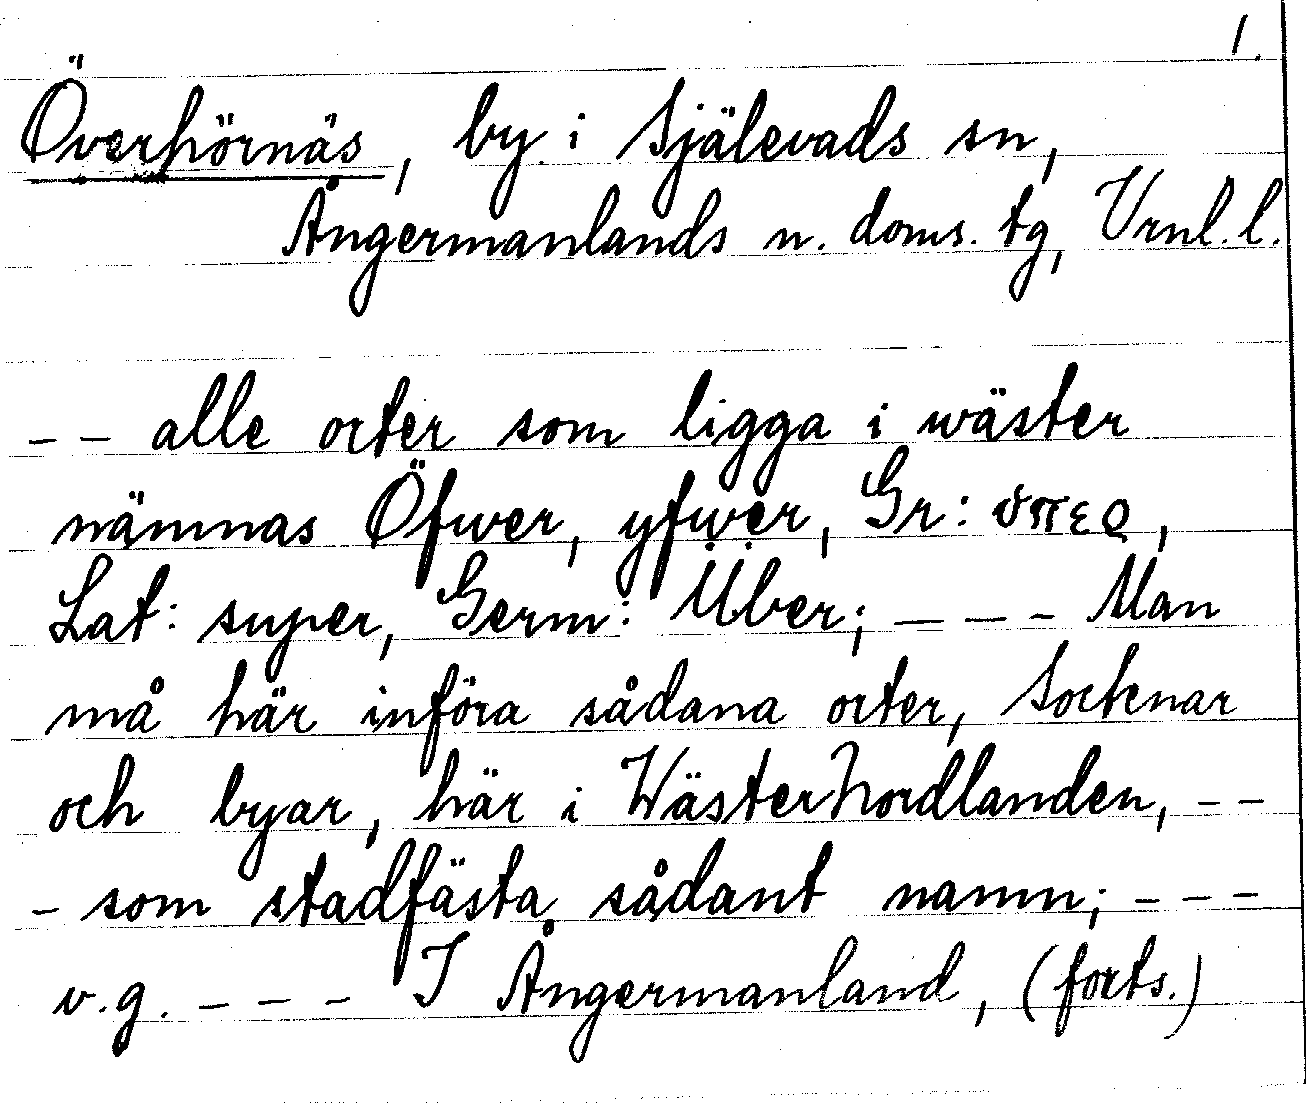 1.
Överhörnäs, by i Själevads sn,
Ångermanlands n. doms. tg, Vrnl. l.
-- alle orter som ligga i wäster
nämnas Öfwer, yfwer, Gr: υπερ,
Lat: super, Germ: Über; --- Man
må här införa sådana orter, Socknar
och byar, här i WästerNordlanden, --
- som stadfästa sådant namn; ---
v.g. --- I Ångermanland, (forts.)